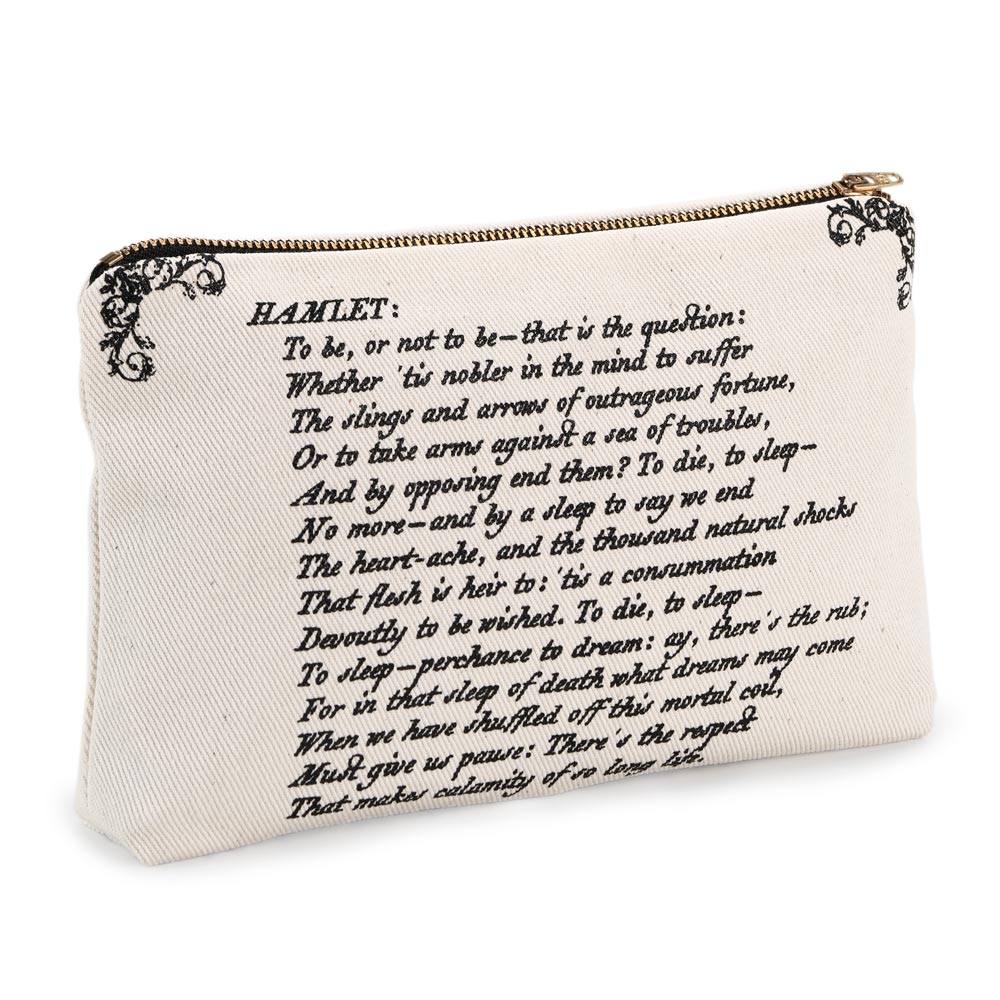 HAMLET:
To be, or not to be—that is the question:
Whether 'tis nobler in the mind to suffer
The slings and arrows of outrageous fortune,
Or to take arms against a sea of troubles,
And by opposing end them? To die, to sleep—
No more—and by a sleep to say we end
The heart-ache, and the thousand natural shocks
That flesh is heir to: 'tis a consummation
Devoutly to be wished. To die, to sleep—
To sleep—perchance to dream: ay, there's the rub;
For in that sleep of death what dreams may come
When we have shuffled off this mortal coil,
Must give us pause: There's the respect
That makes calamity of so long life.